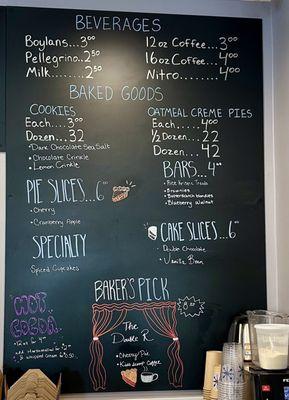 BEVERAGES
Boylans...3⁰⁰
Pellegrino..2⁵⁰
Milk...2⁵⁰
12oz Coffee...3⁰⁰
16oz Coffee...4⁰⁰
Nitro.....4⁰⁰
BAKED GOODS
COOKIES
Each....3⁰⁰
Dozen..32
• Dark Chocolate Sea Salt
• Chocolate Crinkle
• Lemon Crinkle
OATMEAL CREME PIES
Each....4⁰⁰
½ Dozen...22
Dozen...42
BARS...4⁰⁰
• Rice Krispie Treats
• Brownies
• Butterscotch Blondies
• Blueberry Walnut
PIE SLICES...6
• Cherry
• Cranberry Apple
CAKE SLICES..6
• Double Chocolate
• Vanilla Bean
SPECIALTY
Spiced Cupcakes
BAKER'S PICK
The
"Double R"
• Cherry Pie
• Coffee
HOT
COCOA
12oz for 4